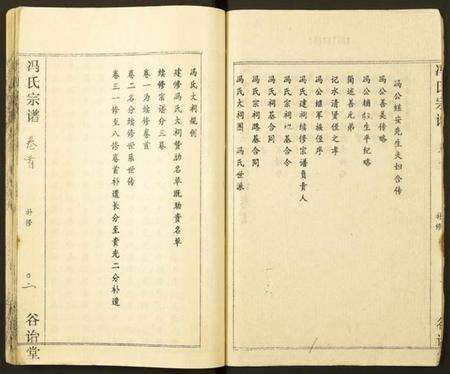 冯公继安先生夫妇合传
冯公善美传略
冯公辅臣生平纪略
简述善元弟
记水清贤侄之孝
冯公继军族侄序
冯氏建祠续修宗谱负责人
冯氏宗祠地基合令
冯氏宗祠路基合同
冯氏大祠图 冯氏世派
冯氏宗谱
冯氏大祠规例
建修冯氏大祠赞助名单既助资名单
续修宗谱分三卷
卷一为续修卷首
卷二名分续修世系世传
卷三一修至八修卷首补遗长分至贵光二分补遗
冯氏宗谱 卷首 补修 谷诒堂